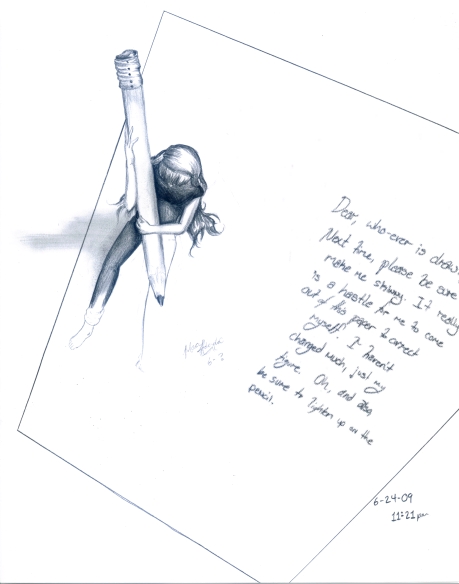 Dear, who-ever is draw
Next time, please be sure
make me skinny. It really
is a hastle for me to come
out of this paper & correct
myself. I haven't
changed much, just my
figure. Oh, and also,
be sure to lighten up on the
pencil.
6-24-09
11:21pm